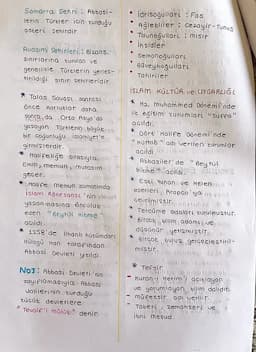 Samarra Şehri: Abbasi-
lerin Türkler için kurduğu
askeri şehirdir.
Avasım Şehirleri: Bizans
sınırlarında kurulan ve
genellikle Türklerin yerleş-
tirildiği sınır şehirleridir.
* Talas Savaşı sonrası
önce Karluklar daha
sonra da Orta Asya'da
yaşayan Türklerin büyük
bir çoğunluğu İslamiyet'e
girmişlerdir.
* Halifeliğe sırasıyla
Emin, Memun, Mutasım
geçer.
* Halife Memun zamanında
İslam Rönesansı'nın
yaşanmasına öncülük
eden "Beytül Hikme"
açıldı.
* 1258'de İlhanlı hükümdarı
Hülagü Han tarafından
Abbasi Devleti yıkıldı.
Not: Abbasi Devleti'nin
zayıflamasıyla Abbasi
valilerinin kurduğu
küçük devletlere
"Tevaif-i mülük" denir.
* İdrisoğulları: Fas
* Ağlebiler: Cezayir-Tunus
* Tolunoğulları: Mısır
* İhşidler
* Samanoğulları
* Büveyhoğulları
* Tahiriler
İSLAM KÜLTÜR ve UYGARLIĞI
* Hz. Muhammed Dönemi'nde
ilk eğitim kurumları "Suffa"
açıldı.
* Dört Halife Dönemi'nde
"Küttab" adı verilen kurumlar
açıldı.
* Abbasiler'de "Beytül
Hikme" açıldı.
* Eski Yunan ve
eserleri, Arapça'ya
çevrilmiştir.
* Tercüme odaları kurulmuştur.
* Birçok bilim adamı ve
düşünür yetişmiştir.
* Birçok buluş gerçekleştiril-
miştir.
* Tefsir
- Kuran-ı Kerim'i açıklayan
ve yorumlayan bilim dalıdır.
- müfessir adı verilir.
- Taberi, Zemahşeri ve
İbni Mesud